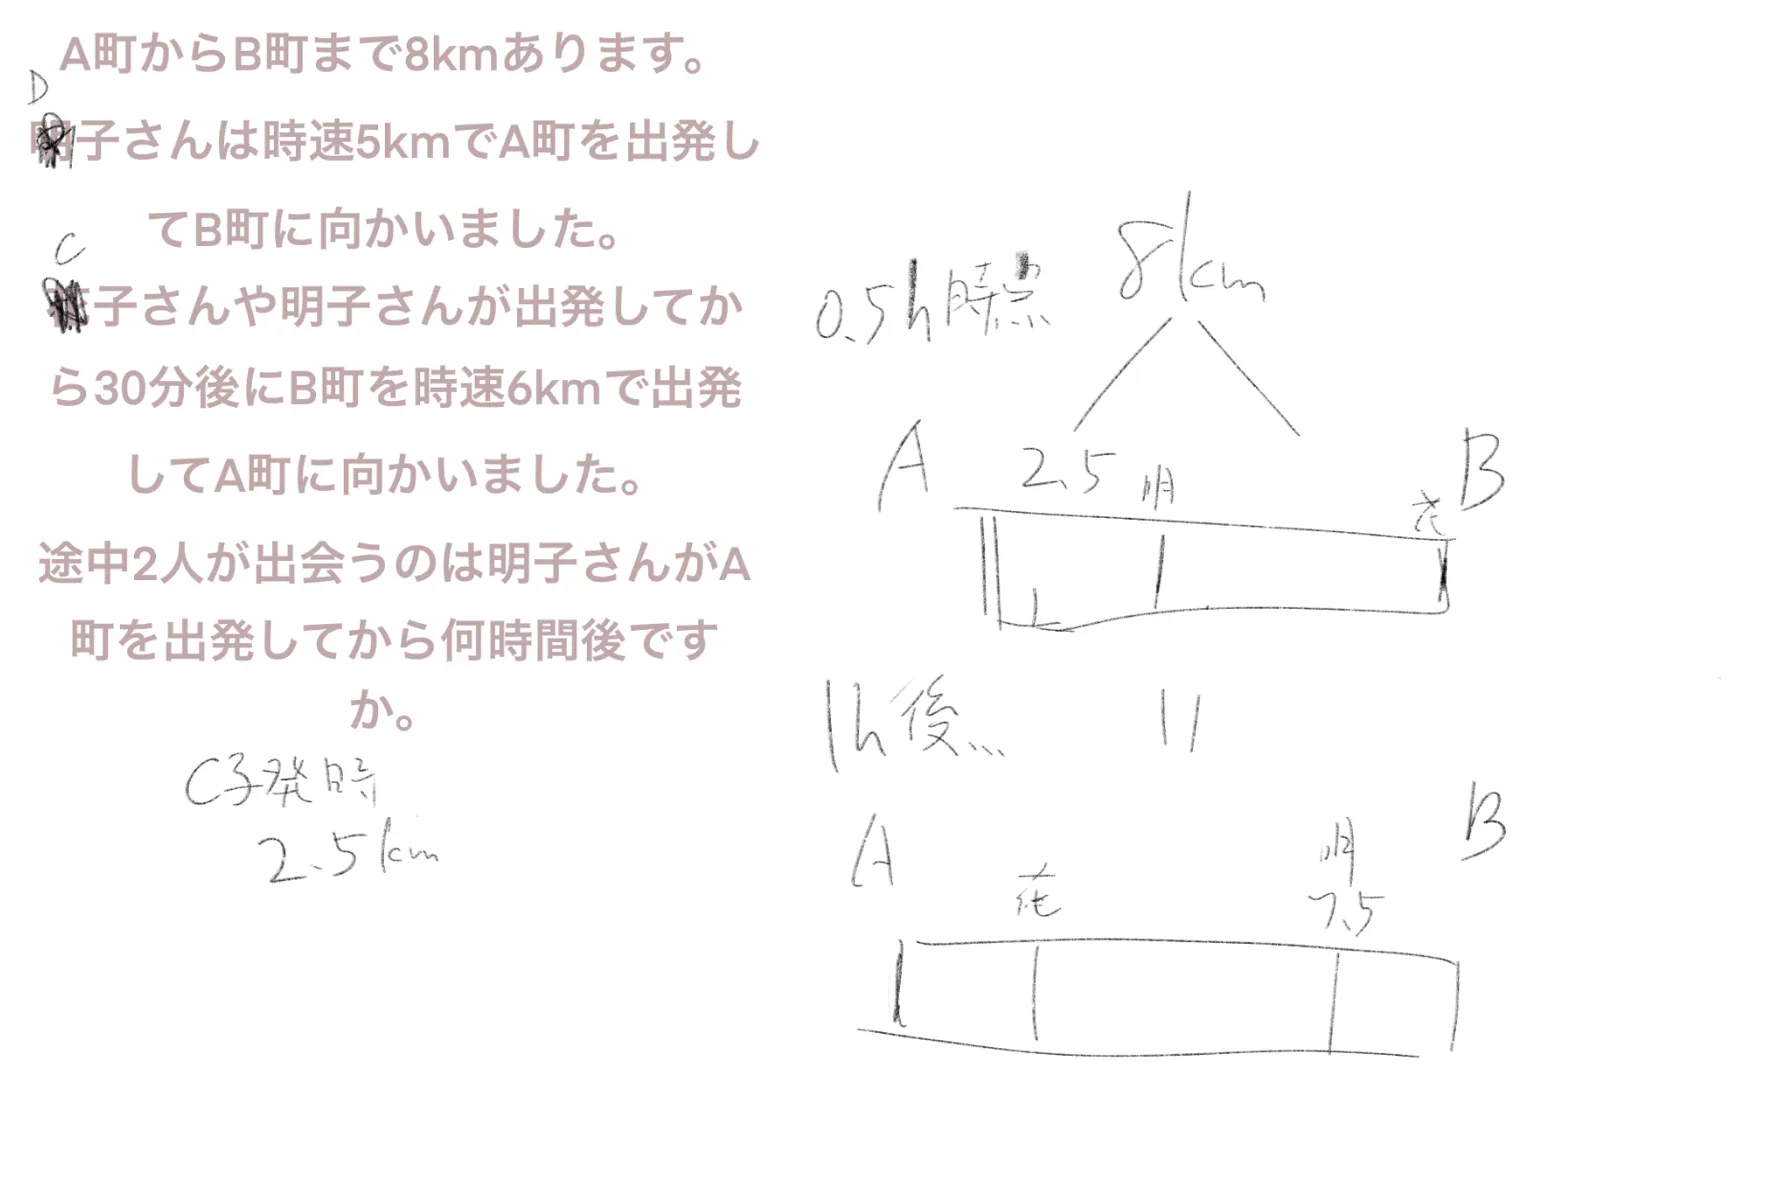 A町からB町まで8kmあります。
D
子さんは時速5kmでA町を出発し
てB町に向かいました。
C
子さんや明子さんが出発してか
ら30分後にB町を時速6kmで出発
してA町に向かいました。
途中2人が出会うのは明子さんがA
町を出発してから何時間後です
か。
C子発時
2.5km
8km
0.5h時点
A 2.5 明 花 B
1h後 11
A 花 明 B
7.5